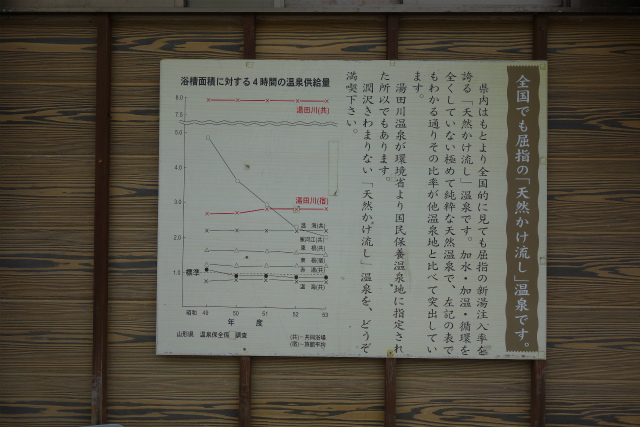 全国でも屈指の「天然かけ流し」温泉です。
県内はもとより全国的に見ても屈指の新湯注入率を
誇る「天然かけ流し」温泉です。加水・加温・循環を
全くしていない極めて純粋な天然温泉で、左記の表で
もわかる通りその比率が他温泉地と比べて突出してい
ます。
湯田川温泉が環境省より国民保養温泉地に指定され
た所以でもあります。
潤沢きわまりない「天然かけ流し」温泉を、どうぞ
満喫下さい。
浴槽面積に対する4時間の温泉供給量
8.0
7.0
湯田川(共)
5.0
4.0
3.0
湯田川(宿)
2.0
温海(共)
東根(共)
東根(宿)
1.0
標準
温海(共)
昭和 49 50 51 52 53
年度
山形県 温泉保全係 調査
(共)－共同浴場
(宿)－旅館平均